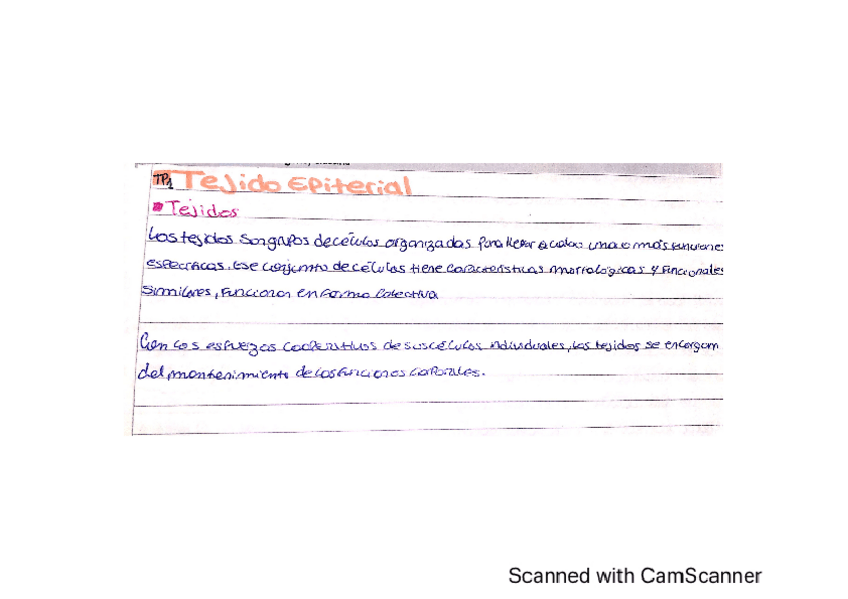 TP1 Tejido Epiterial
Tejidos
Los tejidos son grupos de células organizadas para llevar a cabo una o más funciones
específicas. Ese conjunto de células tiene características morfológicas y funcionales
similares, funcionan en forma colectiva
Con los esfuerzos cooperativos de sus células individuales, los tejidos se encargan
del mantenimiento de las funciones corporales.
Scanned with CamScanner